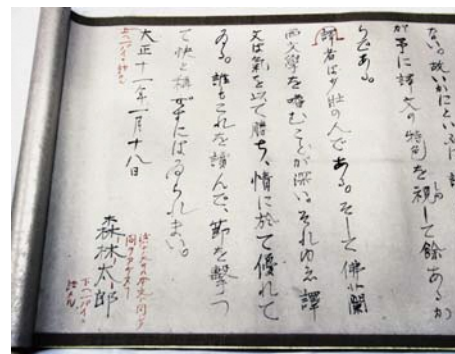 ない。故いかにといふに
が予に譯文の特色を視して餘あるか
らである。
譯者は少壯の人である。そして佛蘭
西文學を嗜むことが深い。それゆゑ譯
文は氣を以て勝ち、情に於て優れて
ゐる。誰もこれを讀んで、節を擊つ
て快と稱せずにはゐられまい。
大正十一年一月十八日
森林太郎